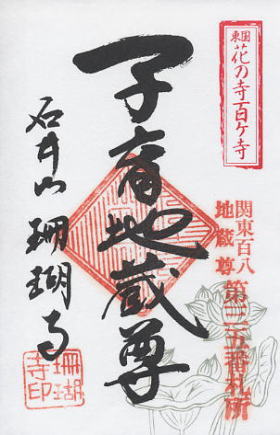 東国
花の寺百ヶ寺
関東百八
地蔵尊
第三五番札所
子育地蔵尊
石井山
珊瑚寺
珊瑚
寺印